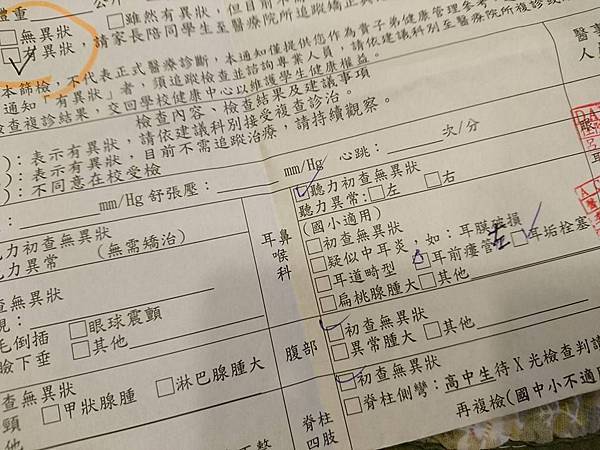 體重
公分
□雖然有異狀，但目前不需
至醫療院所追蹤矯正與
□無異狀
□有異狀，請家長陪同學生至醫療院所追蹤矯正與
本篩檢，不代表正式醫療診斷，本通知僅提供您作為貴子弟健康管理參考，
通知「有異狀」者，須追蹤檢查並諮詢專業人員，請依建議科別至醫療院所複診或
檢查複診結果，交回學校健康中心以維護學生健康權益。
檢查內容、檢查結果及建議事項
)：表示有異狀，請依建議科別接受複查診治。
)：表示有異狀，目前不需追蹤治療，請持續觀察。
)：不同意在校受檢
mm/Hg 舒張壓： mm/Hg 心跳： 次/分
力初查無異狀
力異常 (無需矯治)
查無異狀
毛倒插 □眼球震顫
臉下垂 □其他
查無異狀
頸 □甲狀腺腫 □淋巴腺腫大
耳鼻喉科
□聽力初查無異狀
聽力異常:□左 □右
(國小適用)
□初查無異狀
□疑似中耳炎，如：耳膜破損
□耳道畸型 □耳前瘻管 左 □耳垢栓塞
□扁桃腺腫大□其他
腹部
□初查無異狀
□異常腫大□其他
脊柱四肢
□初查無異狀
□脊柱側彎：高中生待X光檢查判讀
再複檢(國中小不適用
醫事
人員